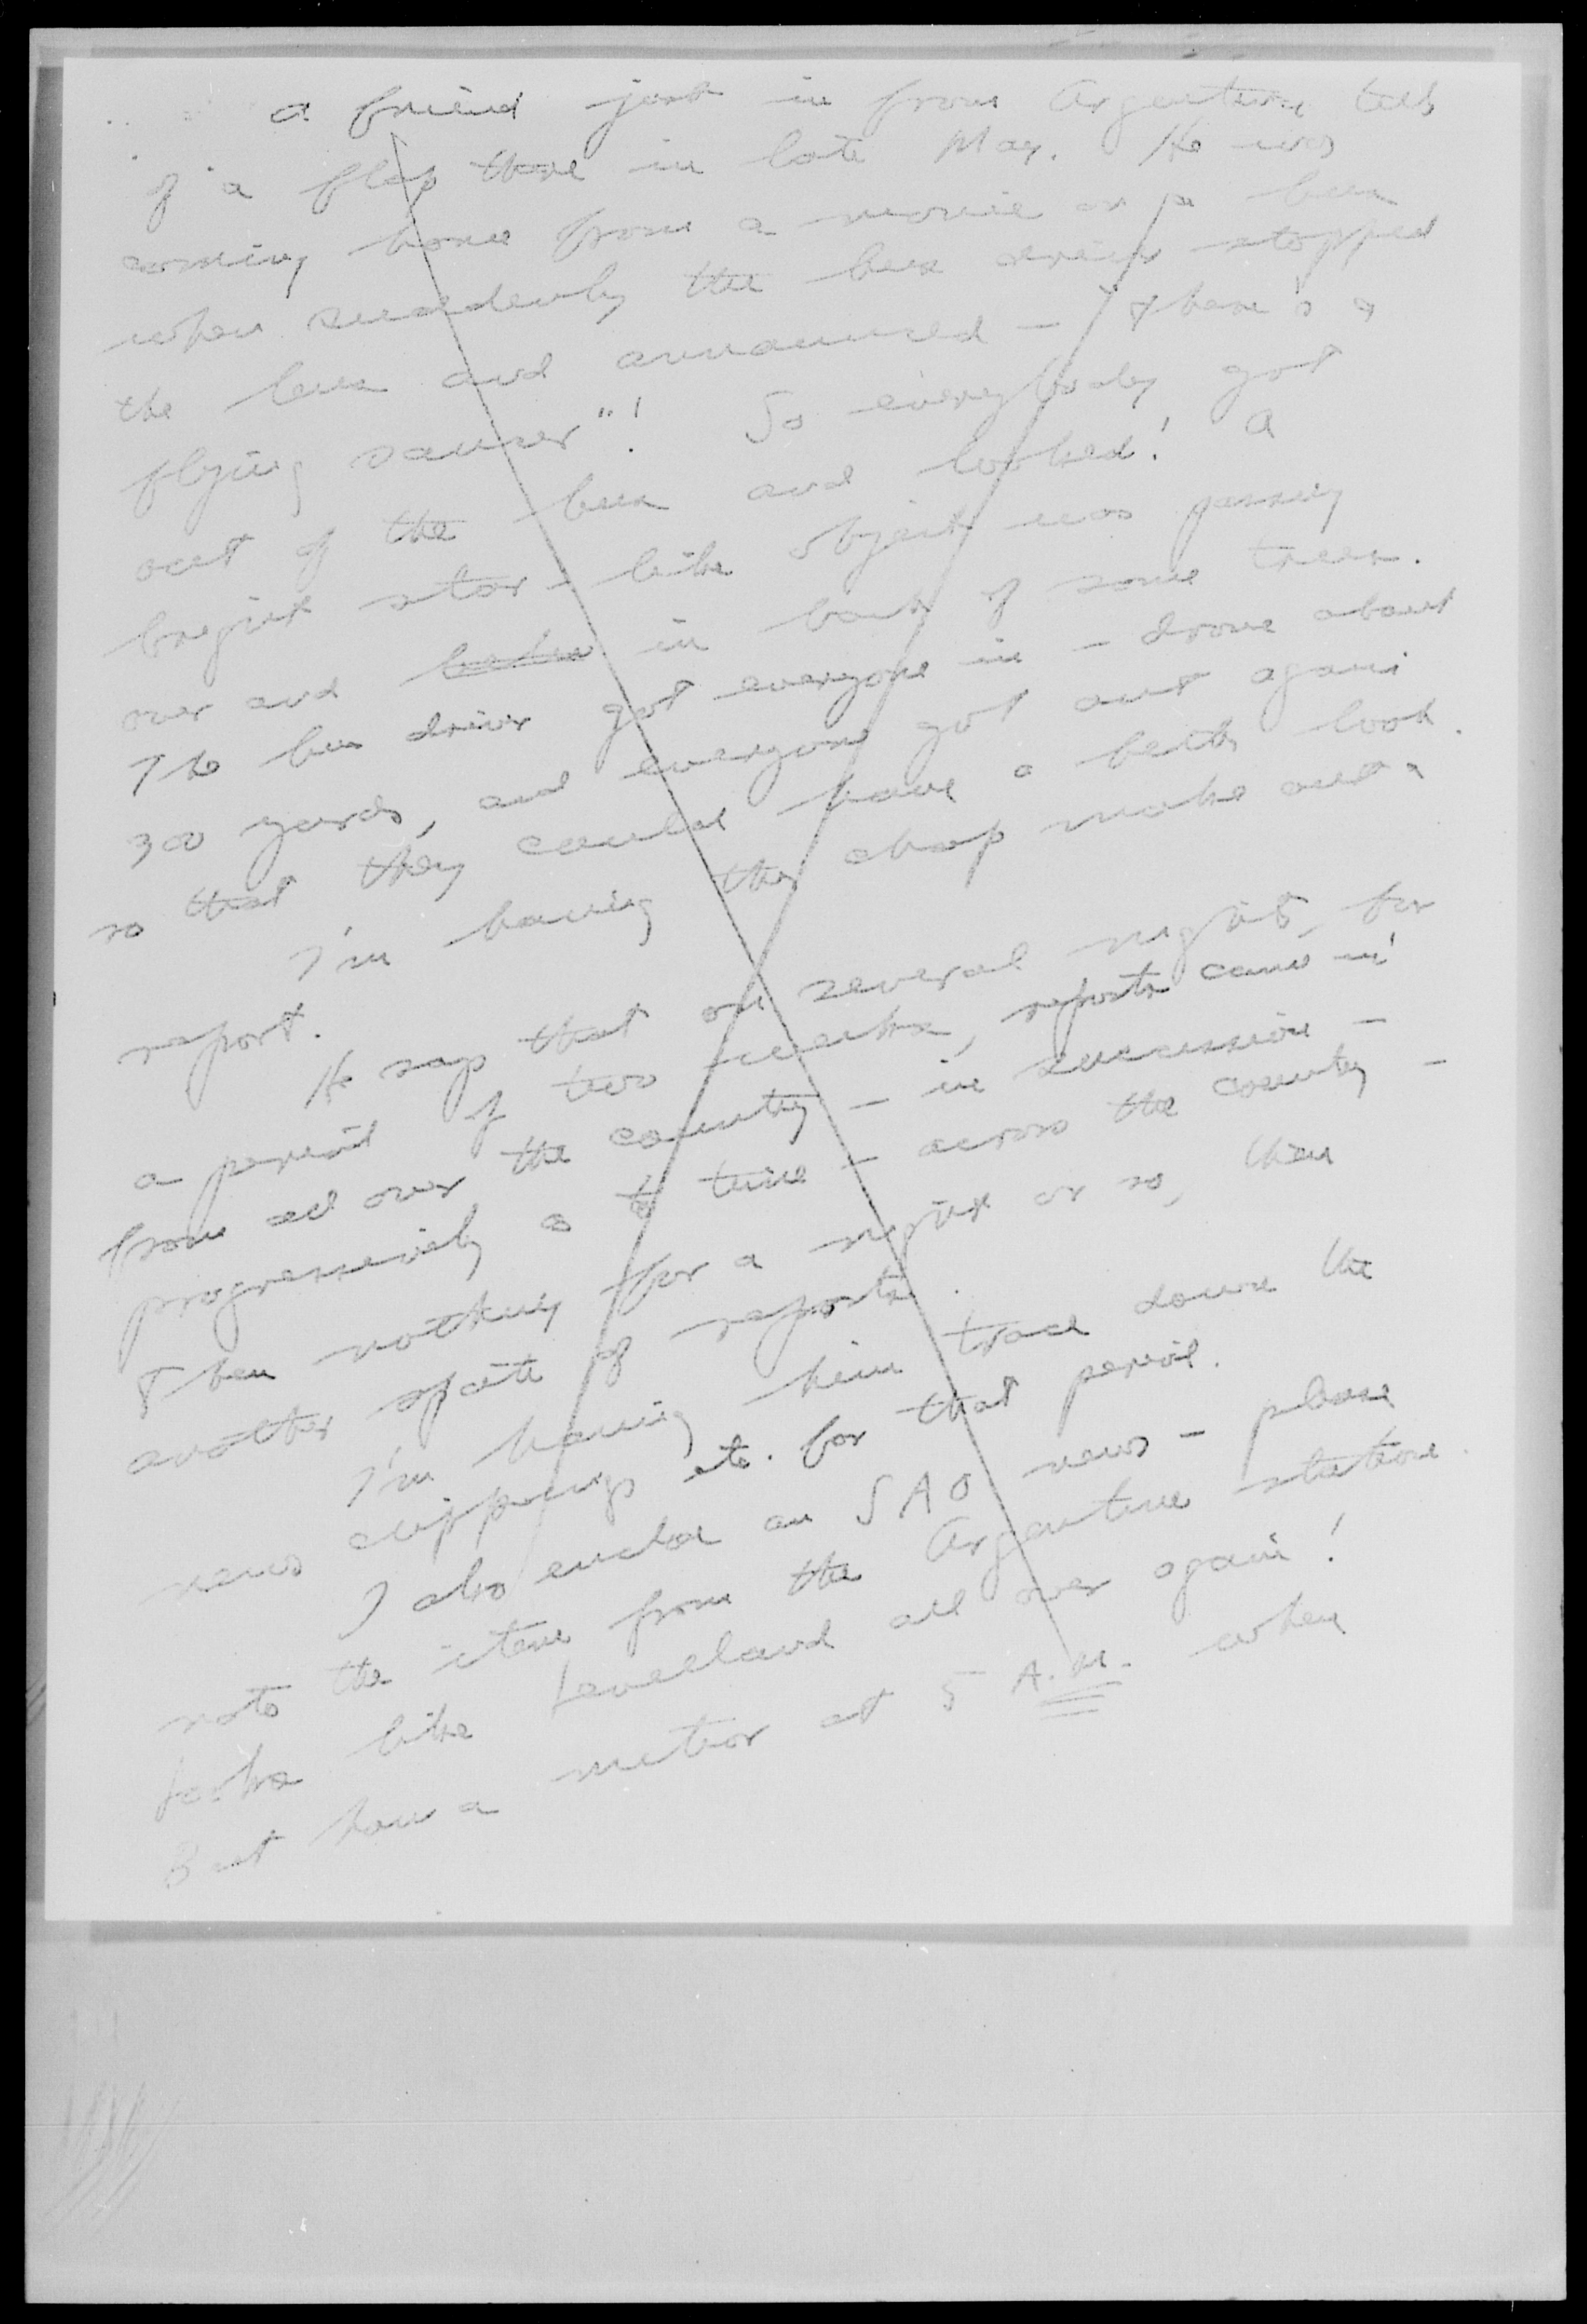 a friend just in from Argentina tells
of a flap there in late May. He was
coming home from a movie on a bus
when suddenly the bus driver stopped
the bus and announced - there's a
flying saucer"! So everybody got
out of the bus and looked! A
bright star-like object was passing
over and in back of some trees.
The bus driver got everyone in - drove about
300 yards, and everyone got out again
so that they could have a better look.
I'm having the chap make out a
report.
He says that on several nights, for
a period of two weeks, reports came in
from all over the country - in succession -
progressively as to time - across the country -
Then nothing for a night or so, then
another spate of reports.
I'm having him trace down the
news clippings etc. for that period.
I also enclose an SAO news - please
note the item from the Argentine station.
Looks like Levelland all over again!
But how a meteor at 5 A.M. when